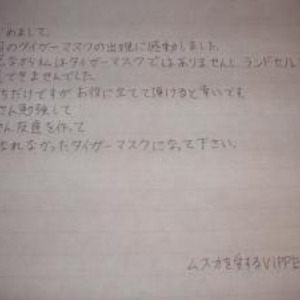 めまして。
のタイガーマスクの出現に感動しました。
ながら私はタイガーマスクではありませんし、ランドセル
できませんでした。
ちだけですが、お役に立てて頂けると幸いです。
さん勉強して
さん友達を作って
なれなかったタイガーマスクになって下さい。
ムスカを愛するVIPPE